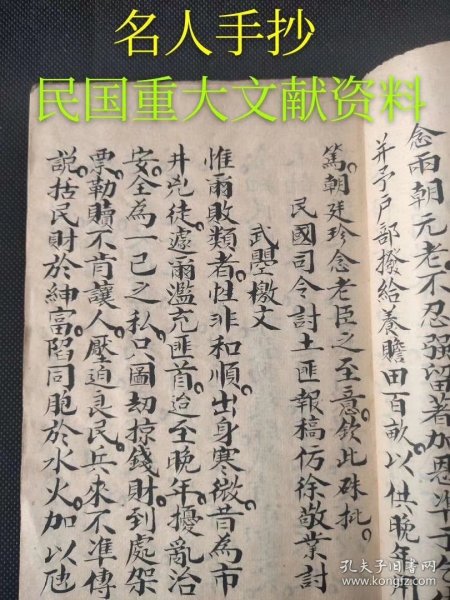 名人手抄
民国重大文献资料
念両朝元老不忍强留著加恩準予
并予戶部撥給養贍田百畝以供晚年
篤朝廷珍念老臣之至意欽此硃批
民國司令討土匪報稿仿徐敬業討
武曌檄文
惟爾敗類者性非和順出身寒微昔為市
井兇徒處爾濫充匪首迨至晚年擾亂治
安全為一己之私只圖刧掠錢財到處架
票勒贖不肯讓人壓迫良民兵來不准傳
說括民財於紳富陷同胞於水火加以虺
孔夫子旧书网
www.kongfz.com